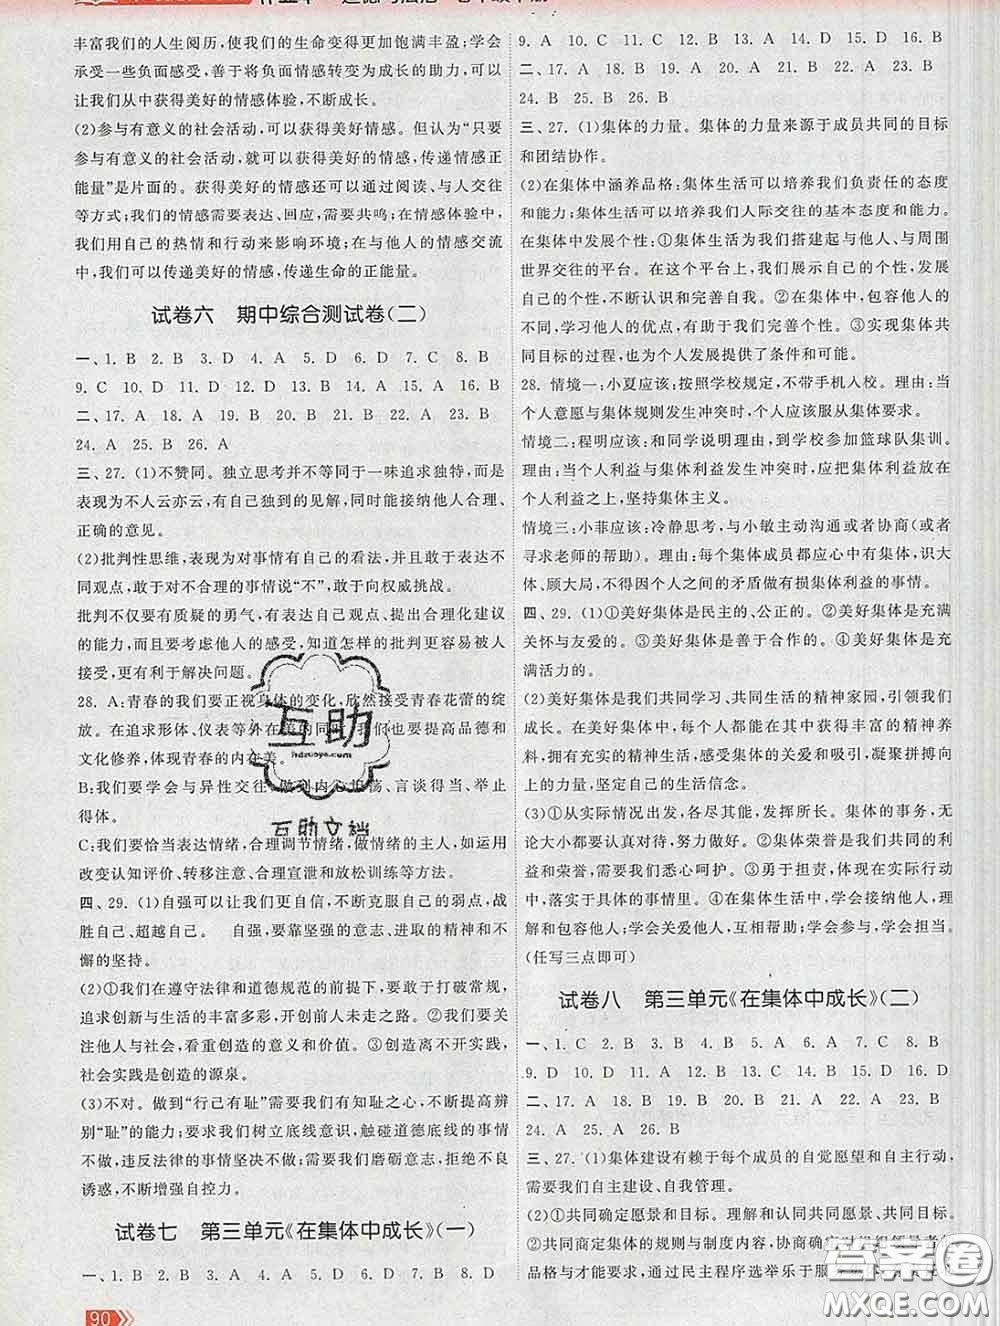 丰富我们的人生阅历,使我们的生命变得更加饱满丰盈;学会
承受一些负面感受,善于将负面情感转变为成长的助力,可以
让我们从中获得美好的情感体验,不断成长。
(2)参与有意义的社会活动,可以获得美好情感。但认为“只要
参与有意义的社会活动,就能获得美好的情感,传递情感正
能量”是片面的。获得美好的情感还可以通过阅读、与人交往
等方式;我们的情感需要表达、回应,需要共鸣;在情感体验中,
我们用自己的热情和行动来影响环境;在与他人的情感交流
中,我们可以传递美好的情感,传递生命的正能量。
试卷六 期中综合测试卷(二)
一、1. B 2. B 3. D 4. A 5. D 6. D 7. C 8. B
9. C 10. D 11. A 12. D 13. C 14. A 15. A 16. B
二、17. A 18. A 19. B 20. B 21. B 22. A 23. B
24. A 25. B 26. A
三、27. (1)不赞同。独立思考并不等同于一味追求独特,而是
表现为不人云亦云,有自己独到的见解,同时能接纳他人合理、
正确的意见。
(2)批判性思维,表现为对事情有自己的看法,并且敢于表达不
同观点,敢于对不合理的事情说“不”,敢于向权威挑战。
批判不仅要有质疑的勇气,有表达自己观点、提出合理化建议
的能力,而且要考虑他人的感受,知道怎样的批判更容易被人
接受,更有利于解决问题。
28. A:青春的我们要正视身体的变化,欣然接受青春花蕾的绽
放。在追求形体、仪表等外在美的同时,我们也要提高品德和
文化修养,体现青春的内在美。
B:我们要学会与异性交往,做到内心坦荡、言谈得当、举止
得体。
C:我们要恰当表达情绪,合理调节情绪,做情绪的主人,如运用
改变认知评价、转移注意、合理宣泄和放松训练等方法。
四、29. (1)自强可以让我们更自信,不断克服自己的弱点,战
胜自己、超越自己。 自强,要靠坚强的意志、进取的精神和不
懈的坚持。
(2)①我们在遵守法律和道德规范的前提下,要敢于打破常规,
追求创新与生活的丰富多彩,开创前人未走之路。②我们要关
注他人与社会,看重创造的意义和价值。③创造离不开实践,
社会实践是创造的源泉。
(3)不对。做到“行己有耻”需要我们有知耻之心,不断提高辨
别“耻”的能力;要求我们树立底线意识,触碰道德底线的事情
不做,违反法律的事情坚决不做;需要我们磨砺意志,拒绝不良
诱惑,不断增强自控力。
试卷七 第三单元《在集体中成长》(一)
一、1. B 2. B 3. D 4. A 5. D 6. A 7. B 8. D
90
9. A 10. D 11. C 12. A 13. C 14. D 15. C 16. B
二、17. A 18. B 19. A 20. B 21. A 22. A 23. B
24. B 25. B 26. B
三、27. (1)集体的力量。集体的力量来源于成员共同的目标
和团结协作。
(2)在集体中涵养品格:集体生活可以培养我们负责任的态度
和能力;集体生活可以培养我们人际交往的基本态度和能力。
在集体中发展个性:①集体生活为我们搭建起与他人、与周围
世界交往的平台。在这个平台上,我们尝试展示自己的个性,发展
自己的个性,不断认识和完善自我。②在集体中,包容他人的
不同,学习他人的优点,有助于我们完善个性。③实现集体共
同目标的过程,也为个人发展提供了条件和可能。
28. 情境一:小夏应该:按照学校规定,不带手机入校。理由:当
个人意愿与集体规则发生冲突时,个人应该服从集体要求。
情境二:程明应该:和同学说明理由,到学校参加篮球队集训。
理由:当个人利益与集体利益发生冲突时,应把集体利益放在
个人利益之上,坚持集体主义。
情境三:小菲应该:冷静思考,与小敏主动沟通或者协商(或者
寻求老师的帮助)。理由:每个集体成员都应心中有集体,识大
体、顾大局,不得因个人之间的矛盾做有损集体利益的事情。
四、29. (1)①美好集体是民主的、公正的。②美好集体是充满
关怀与友爱的。③美好集体是善于合作的。④美好集体是充
满活力的。
(2)美好集体是我们共同学习、共同生活的精神家园,引领我们
成长。在美好集体中,每个人都能在其中获得丰富的精神养
料,拥有充实的精神生活,感受集体的关爱和吸引,凝聚拼搏向
上的力量,坚定自己的生活信念。
(3)①从实际情况出发,各尽其能,发挥所长。集体的事务,无
论大小都要认真对待、努力做好。②集体荣誉是我们共同的利
益和荣誉,需要我们悉心呵护。③勇于担责,体现在实际行动
中,落实于具体的事情里。④在集体生活中,学会接纳他人,理
解和包容他人;学会关爱他人,互帮互助;学会参与,学会担当。
(任写三点即可)
试卷八 第三单元《在集体中成长》(二)
一、1. C 2. B 3. D 4. B 5. D 6. C 7. D 8. B
9. D 10. D 11. A 12. D 13. C 14. D 15. B 16. D
二、17. A 18. B 19. A 20. A 21. B 22. A 23. B
24. A 25. A 26. B
三、27. (1)集体建设有赖于每个成员的自觉愿望和自主行动,
需要我们自主建设、自我管理。
(2)①共同确定愿景和目标。理解和认同共同愿景、共同目标。
②共同商定集体的规则与制度内容,协商确定
品格与才能要求,通过民主程序选举乐于服
互助
hdzuoye.com
互助文档
答案圈
MXQE.COM